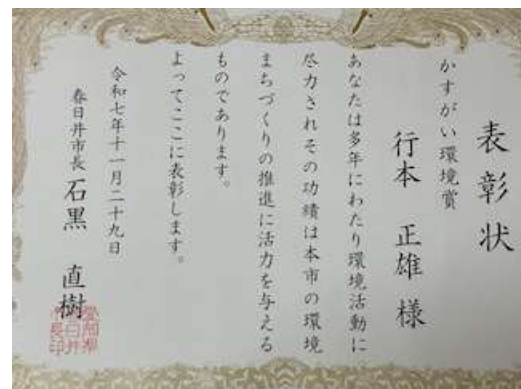 表彰状
かすがい環境賞
行本 正雄 様
あなたは多年にわたり環境活動に
尽力されその功績は本市の環境
まちづくりの推進に活力を与える
ものであります。
よってここに表彰します。
令和七年十一月二十九日
春日井市長 石黒 直樹
愛知県
春日井
市長印